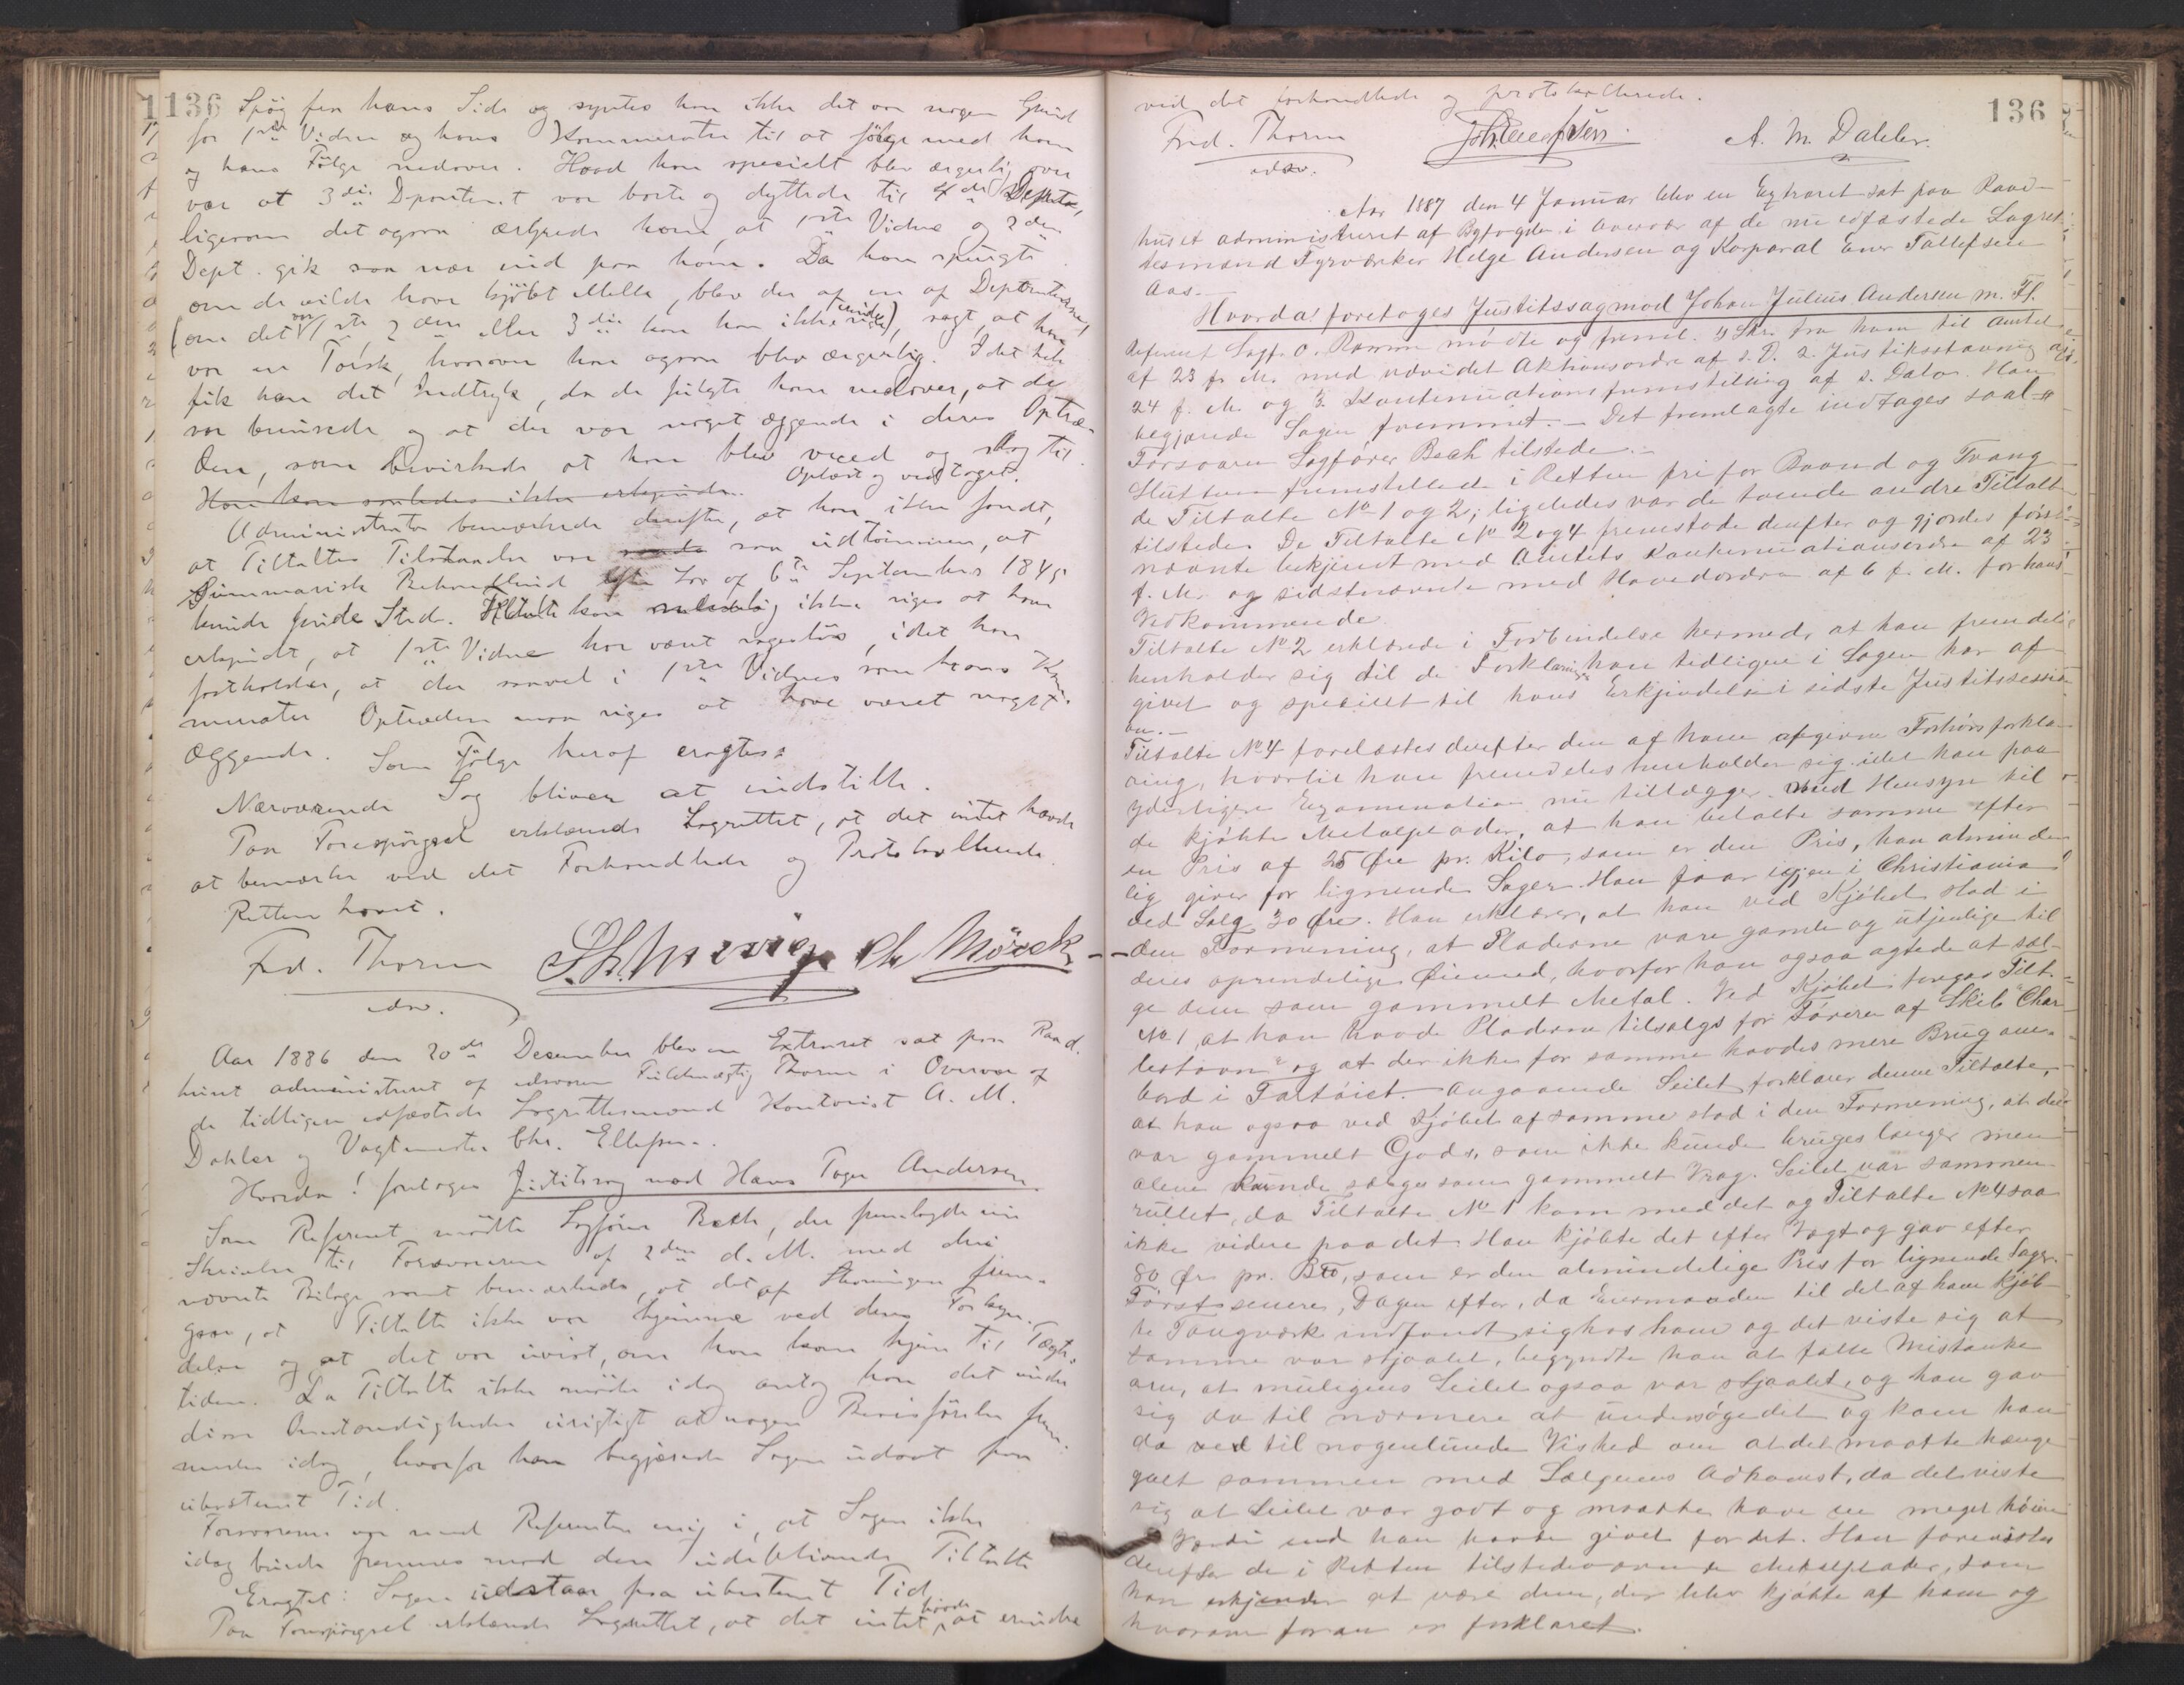 136 Spøg fra hans Side og syntes han ikke det var nogen Grund
for 1ste Vidne og hans Kammerater til at følge med ham
og hans Følge nedover. Hvad han specielt blev ærgerlig over
var at 3die Deponent var borte og dyttede til 4de Depnt.,
ligesom det ogsaa ærgrede ham, at 1ste Vidne og 2den
Dept. gik saa nær ind paa ham. Da han spurgte
om de vilde have kjøbt Mella, blev der af en af Deponterne,
(om det var 1ste, 2den eller 3die kan han ikke sige), sagt, at han
var en Torsk, hvorover han ogsaa blev ærgerlig. I det hele
fik han det Indtryk, da de fulgte ham nedover, at de
var berusede og at der var noget æggende i deres Optræ-
den, som bevirkede at han blev vred og slog til.
Han kan saaledes ikke erkjende. Oplæst og vedtaget.
Administrator bemærkede derefter, at han ikke fandt,
at Tiltaltes Tilstaaelse var saa udtømmen, at
Summarisk Behandling efter Lov af 6te September 1845
kunde finde Sted. Tiltalte kan ikke siges at have
erkjendt, at 1ste Vidne har været sagesløs, idet han
fastholder, at der saavel i 1ste Vidnes som hans Kam-
merater Optræden maa siges at have været noget
æggende. Som Følge heraf eragtes:
Nærværende Sag bliver at indstille.
Paa Forespørgsel erklærede Lagrettet, at det intet havde
at bemærke ved det Forhandlede og Protokollerede.
Retten hævet.
Frd. Thorm Chr Mörck
edsv.
Aar 1886 den 20de December blev en Extraret sat paa Raad-
huset administreret af edsvoren Fuldmægtig Thorm i Overvær af
de tidligere edfæstede Lagrettesmænd Kontorist A. M.
Dahler og Vagtmester Chr. Ellefsen.
Hvorda! foretages Justitssag mod Hans Tager Andersen.
Som Referent mødte Sagfører Bech, der fremlagde sin
Skrivelse til Forsvareren af 2den d. M. med dens
nævnte Bilage samt bemærkede, at det af Skrivningen frem-
gaar, at Tiltalte ikke var hjemme ved dens Forkyn-
delse og at det var uvist, om han kom hjem til Tægte-
tiden. Da Tiltalte ikke mødte idag antog han det under
disse Omstændigheder urigtigt at nogen Bevisførelse frem-
medes idag, hvorfor han begjærede Sagen udsat paa
ubestemt Tid.
Forsvareren var med Referenten enig i, at Sagen ikke
idag burde fremmes mod den udeblivende Tiltalte
Eragtet: Sagen udstaar paa ubestemt Tid
Paa Forespørgsel erklærede Lagrettet, at det intet havde at erindre
136
ved det forhandlede og protokollerede.
Frd. Thorm A. M. Dahler.
edsv.
Aar 1887 den 4 Januar blev en Extraret sat paa Raad-
huset administreret af Byfogden i Overvær af de nu edfæstede Lagret-
tesmænd Fyrværker Helge Andersen og Korporal Ener Tallefsen
Aas.-
Hvorda! foretoges Justitssag mod Johan Julius Andersen m. Fl.
Referent Sagf. O. Ramm mødte og freml. Skr. fra ham til Amtet
af 23 f. M. med udvidet Aktionsordre af s. D. 2. Justitsstævning af
24 f. M. og 3. Kontinuationsfremstilling af s. Dato. Han
begjærede Sagen fremmet. - Det fremlagte indtages saal-
Forsvaren Sagfører Bech tilstede.-
Sluttene fremstillede i Retten fri for Baand og Tvang
de Tiltalte No 1 og 2; ligeledes var de tvende andre Tiltalte
tilstede. De Tiltalte No 2 og 4 fremstode derefter og gjordes først-
nævnte bekjendt med Amtets Kontinuationsordre af 23
f. M. og sidstnævnte med Hovedordren af 6 f. M. for hans
Vedkommende.
Tiltalte No 2 erklærede i Forbindelse hermed, at han fremdeles
henholder sig til de Forklaringer han tidligere i Sagen har af-
givet og specielt til hans Erkjendelse i sidste Justitssessi-
on.-
Tiltalte No 4 forelæstes derefter den af ham afgivne Forhørsforkla-
ring, hvortil han fremdeles henholder sig idet han paa
yderligere Examination nu tillægger med Hensyn til
de kjøbte Metalplader, at han betalte samme efter
en Pris af 25 Øre pr. Kilo, som er den Pris, han alminde-
lig giver for lignende Sager. Han faar igjen i Christiania
ved Salg 30 Øre. Han erklærer, at han ved Kjøbet stod i
den Formening, at Pladerne vare gamle og utjenlige til
deres oprindelige Øiemed, hvorfor han ogsaa agtede at sæl-
ge dem som gammelt Metal. Ved Kjøbet foregav Tilt.
No 1, at han havde Pladerne tilsalgs for Føreren af Skib "Char-
lestown" og at der ikke for samme havdes mere Brug om-
bord i Fartøiet. Angaaende Seilet forklarer denne Tiltalte,
at han ogsaa ved Kjøbet af samme stod i den Formening, at det
var gammelt Gods, som ikke kunde bruges længer men
alene kunde sælges som gammelt Vrag. Seilet var sammen-
rullet, da Tiltalte No 1 kom med det og Tiltalte No 4 saa
ikke videre paa det. Han kjøbte det efter Vægt og gav efter
80 Øre pr. B℔, som er den almindelige Pris for lignende Sager.
Først senere, Dagen efter, da Eiermanden til det af ham kjøb-
te Taugværk indfandt sig hos ham og det viste sig at
samme var stjaalet, begyndte han at fatte Mistanke
om, at muligens Seilet ogsaa var stjaalet, og han gav
sig da til nærmere at undersøge det og kom han
da ved til nogenlunde Vished om at det maatte hænge
galt sammen med Sælgerens Adkomst, da det viste
sig at Seilet var godt og maatte have en meget høiere
Værdi end han havde givet for det. Han forevistes
derefter de i Retten tilstedeværende Metalplader, som
han erkjender at være dem, der blev kjøbte af ham og
hvorom foran er forklaret.